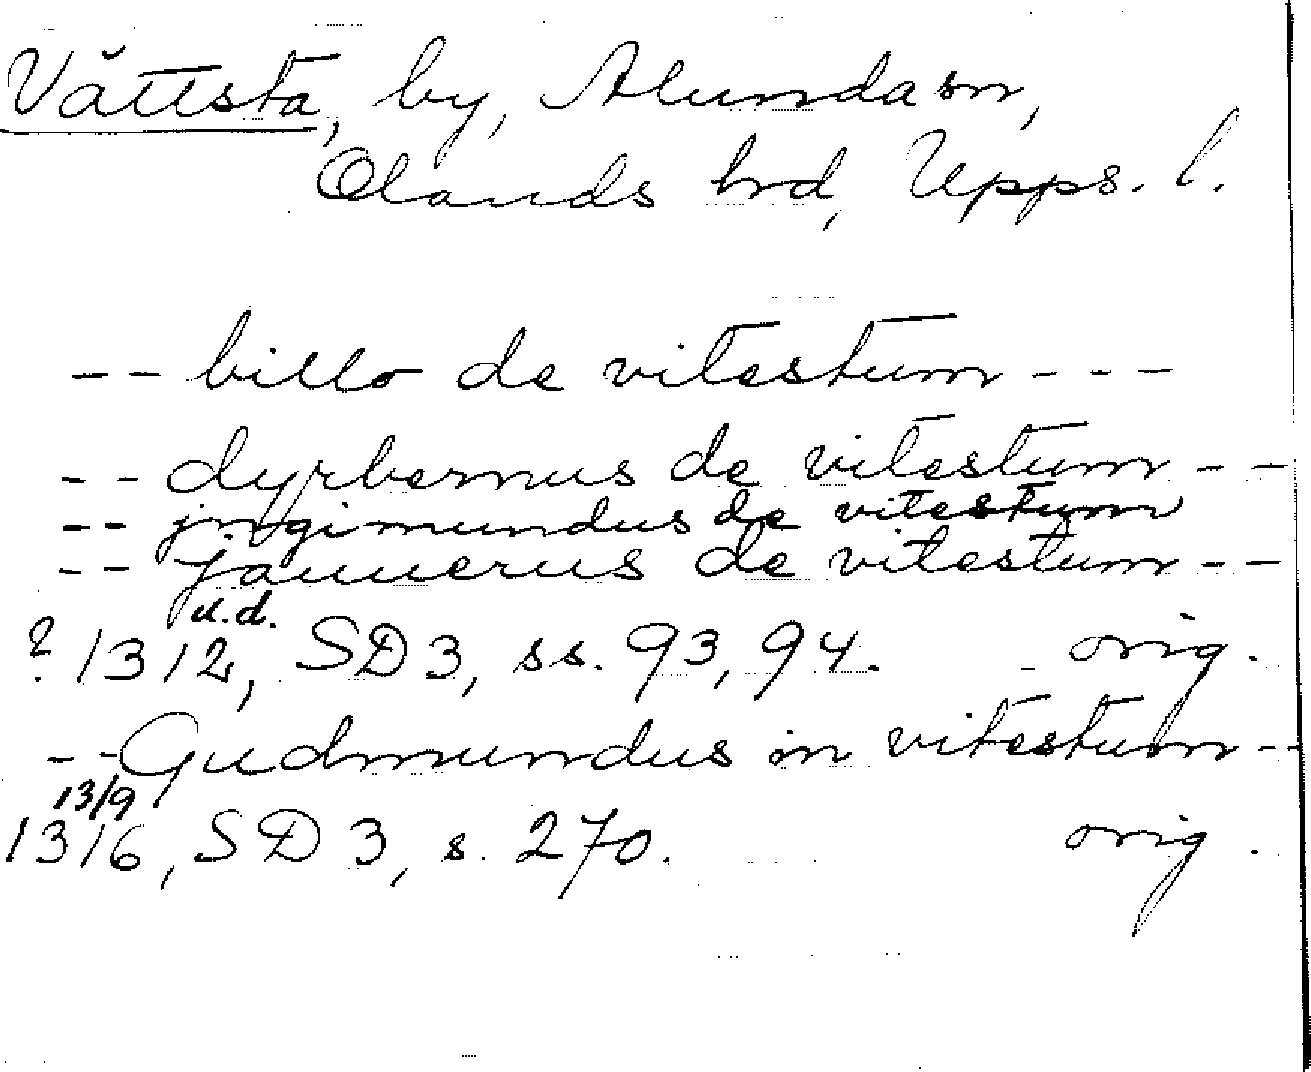 Vättsta, by, Alunda sn,
Olands hrd, Upps. l.
-- billo de vitestum ---
-- dyrbernus de vitestum --
-- jngimundus de vitestum
-- faunerus de vitestum --
u.d.
? 1312, SD 3, ss. 93, 94. orig.
-- Gudmundus in vitestum --
13/9
1316, SD 3, s. 270. orig.